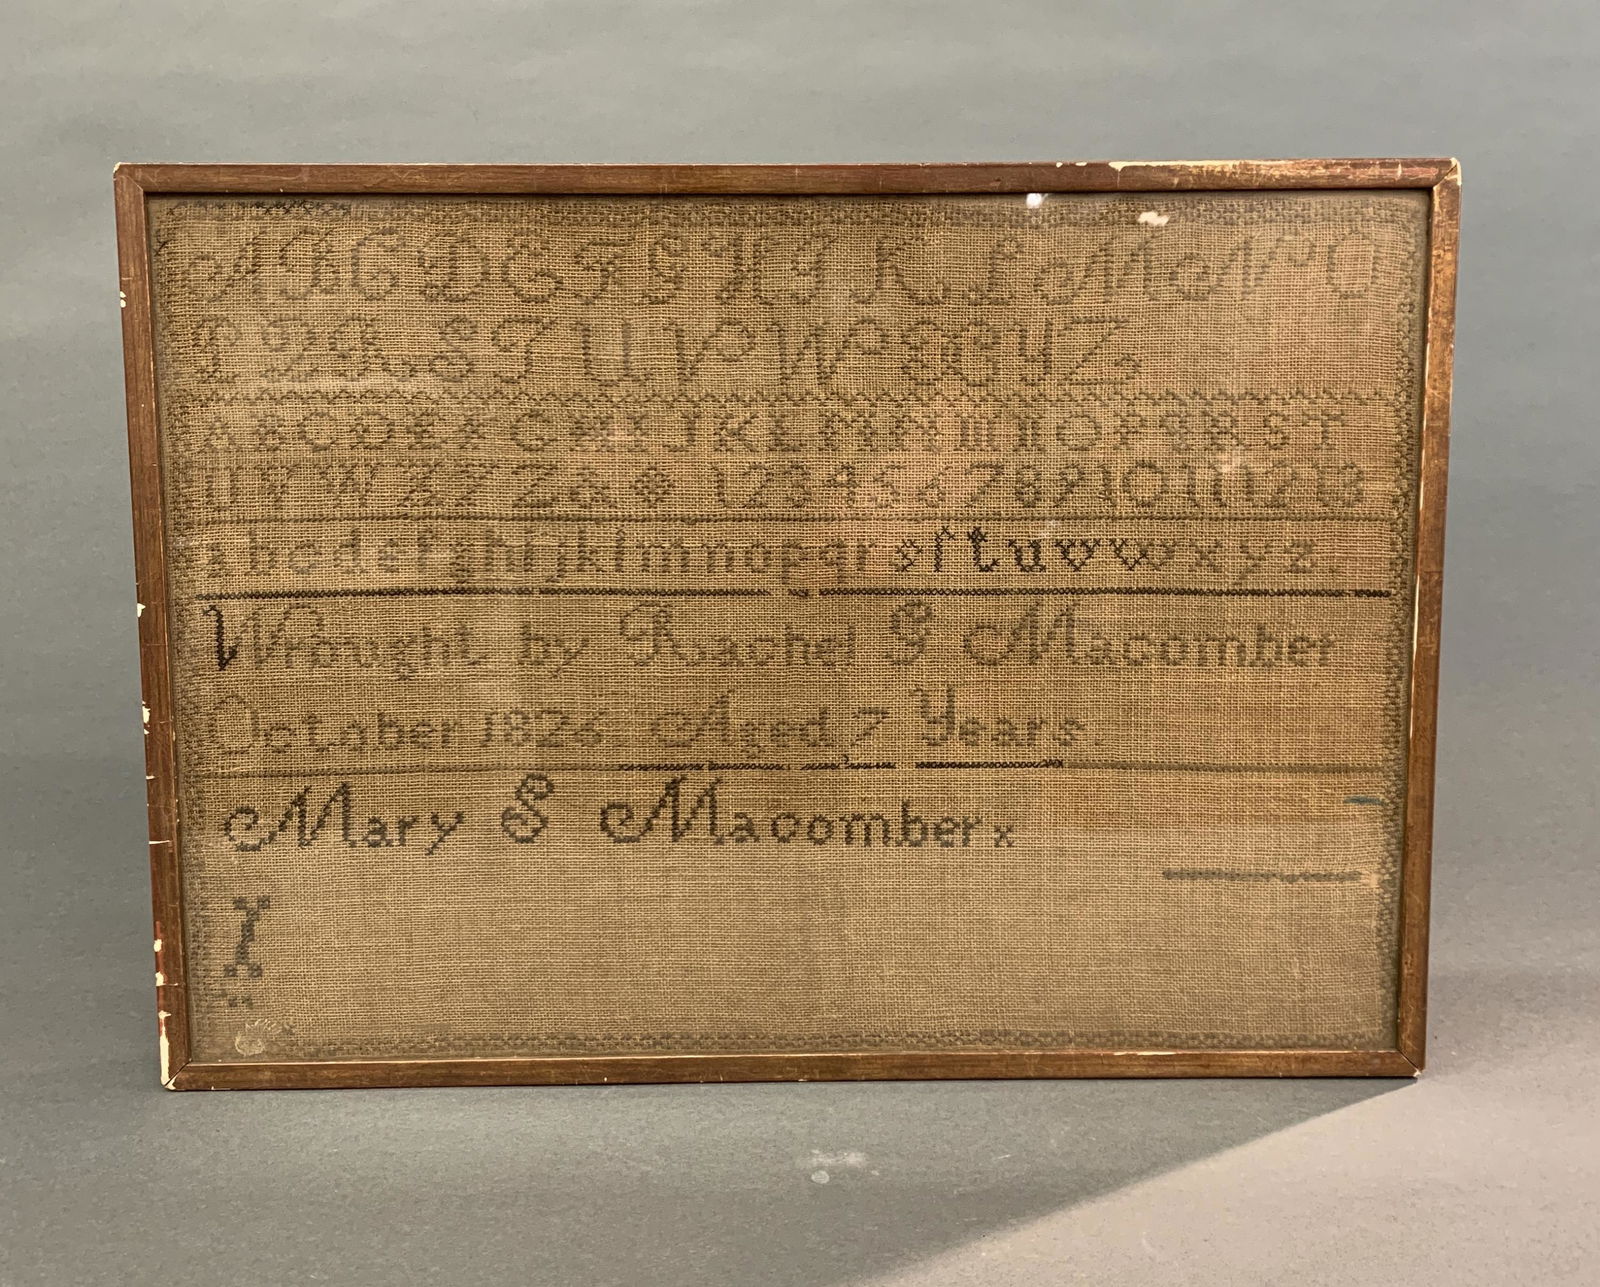 A B C D E F G H I K L M N O
P Q R S T U V W X Y Z
A B C D E F G H I J K L M N O P Q R S T
U V W X Y Z & 1 2 3 4 5 6 7 8 9 10 11 12 13
a b c d e f g h i j k l m n o p q r s ſ t u v w x y z.
Wrought by Rachel G Macomber
October 1826 Aged 7 Years.
Mary S Macomber x